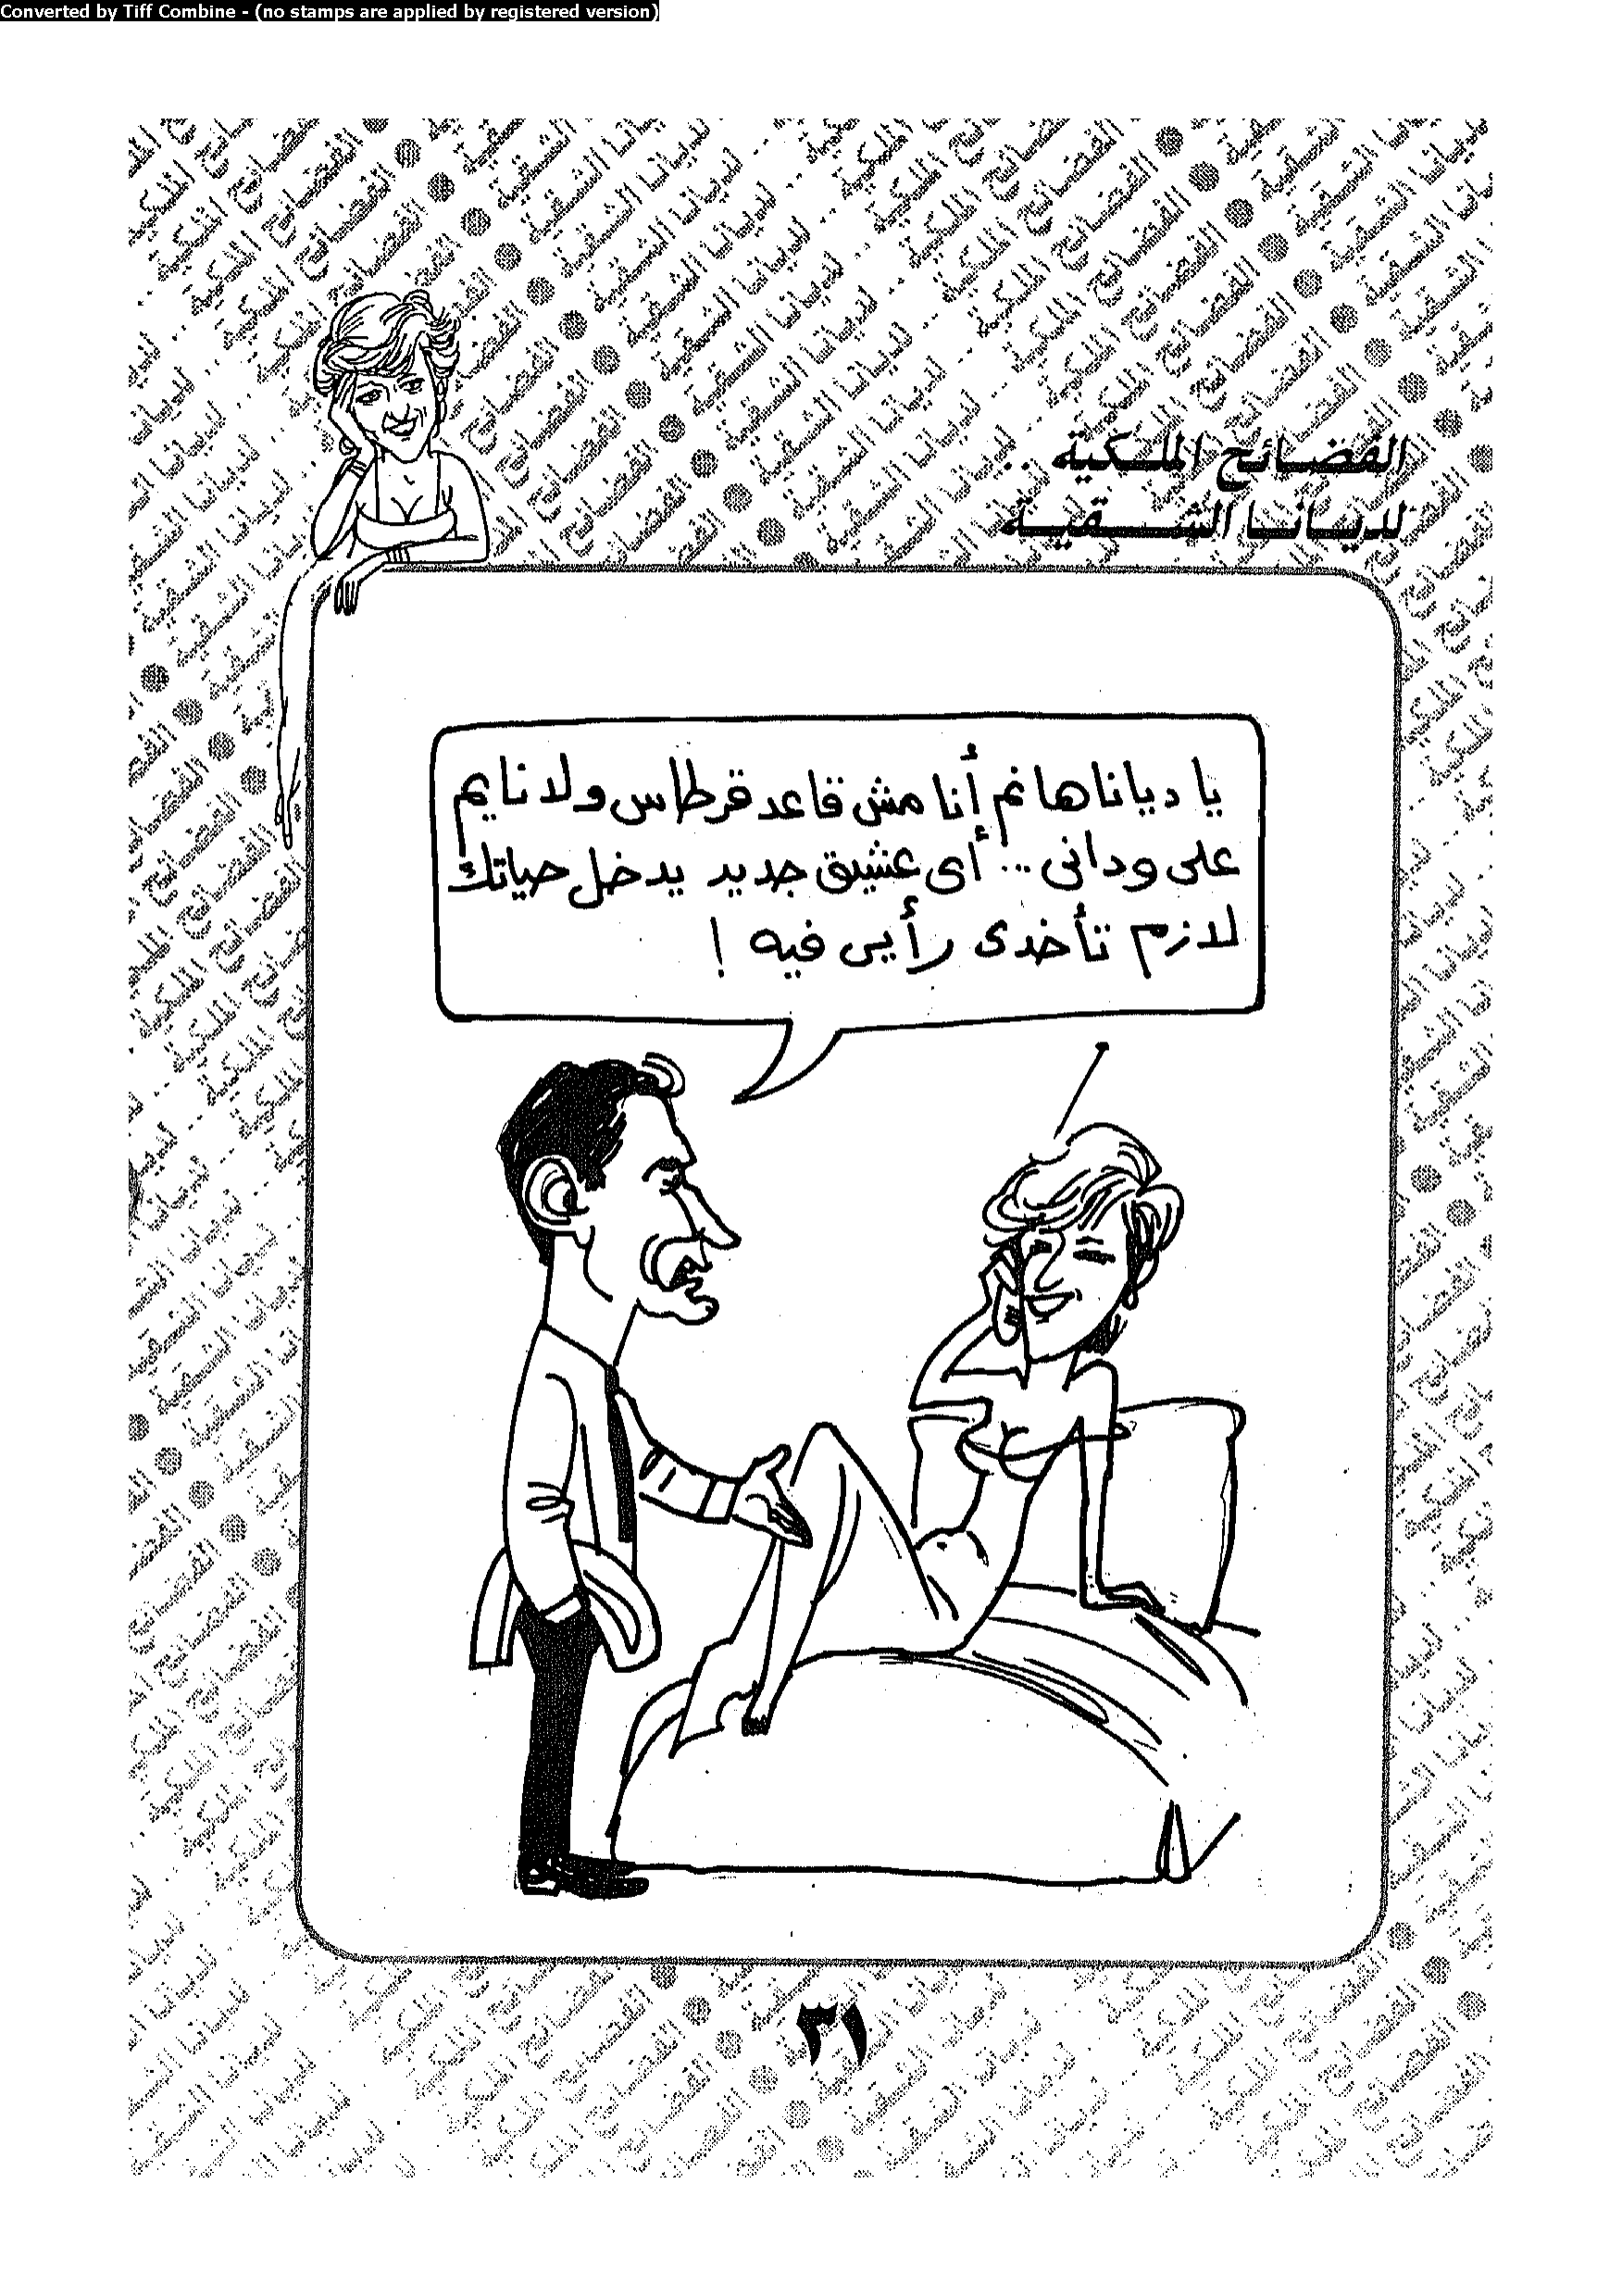 Converted by Tiff Combine - (no stamps are applied by registered version)
الفضائح الملكية ..
لديانا الشقية
يا ديانا هانم أنا مش قاعد قرطاس ولا نايم
على ودانى ... أى عشيق جديد يدخل حياتك
لازم تأخدى رأيى فيه !
٣١